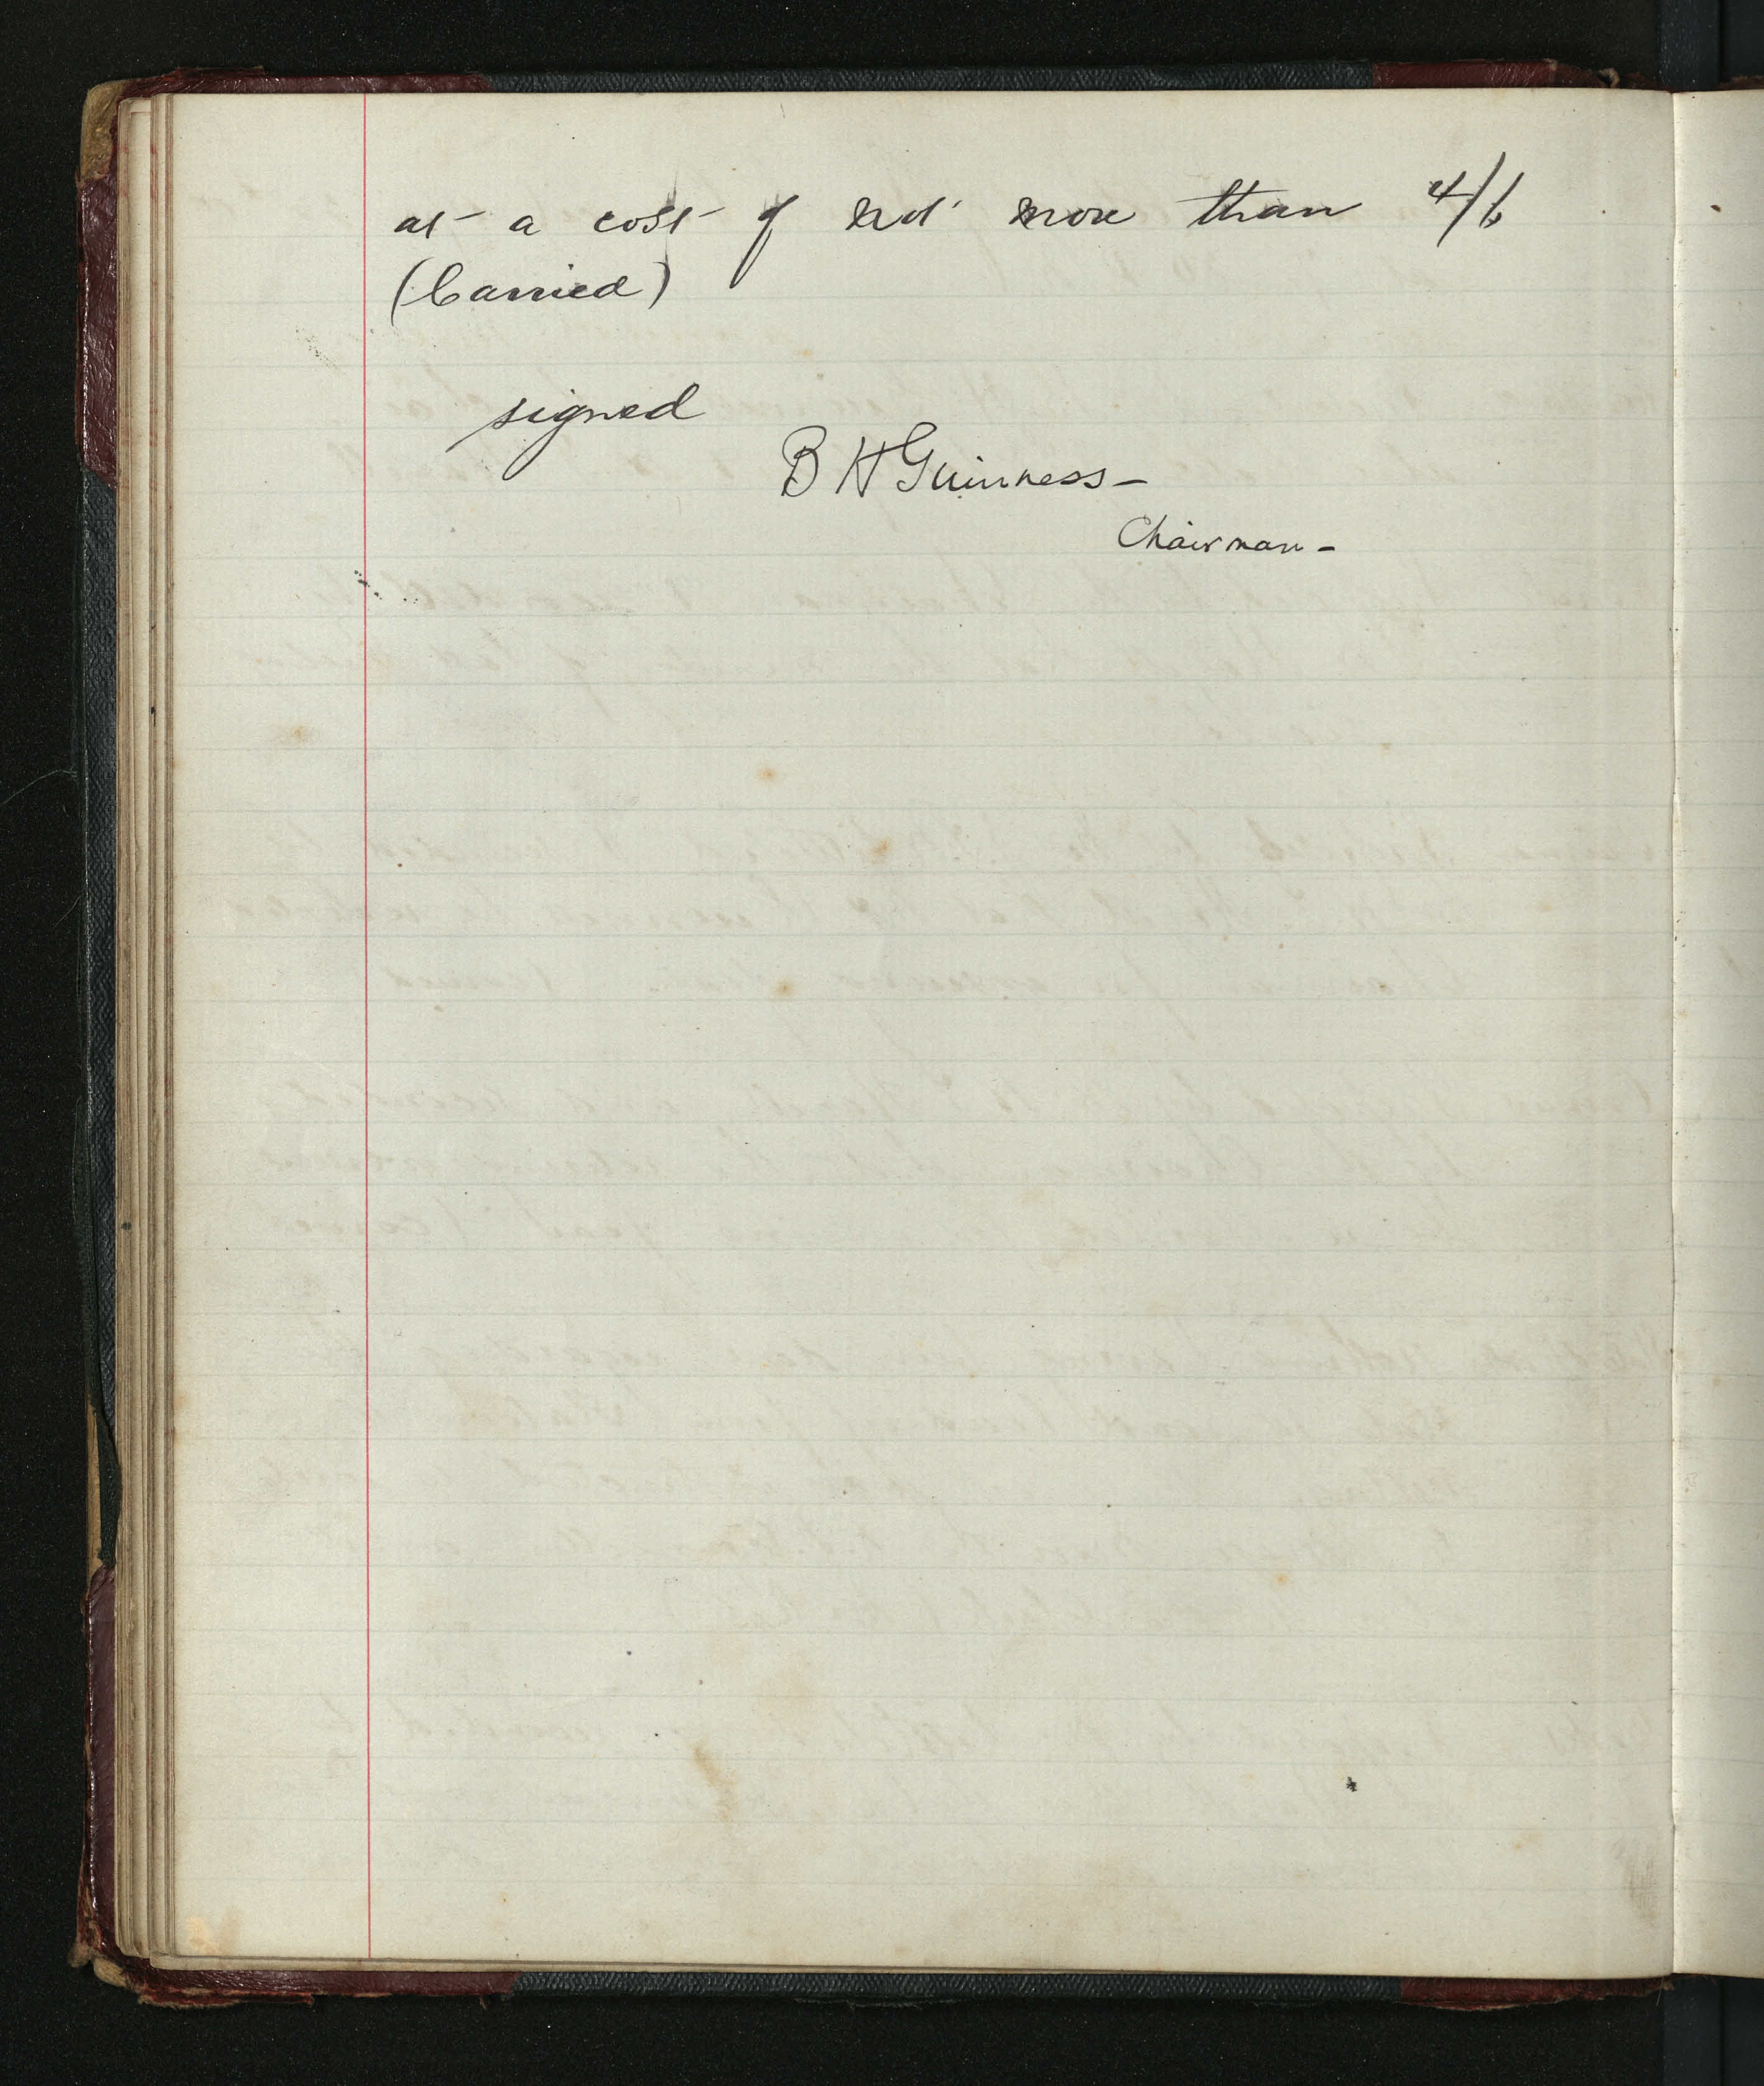 at a cost of not more than 4/6
(Carried)
signed
B H Guinness -
Chairman -